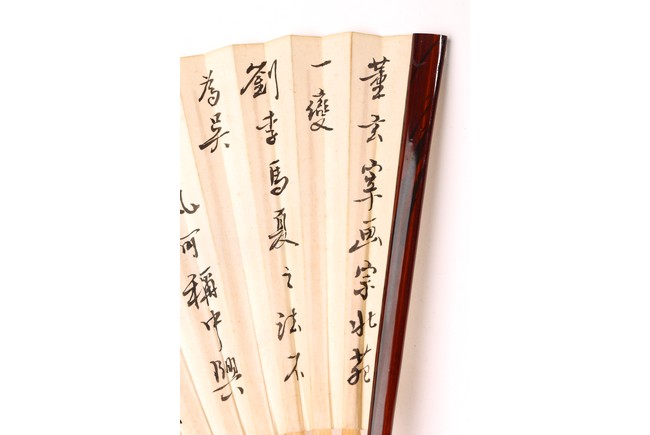 董玄宰画宗北苑
一變
劉李馬夏之法不
為吳
何稱中興